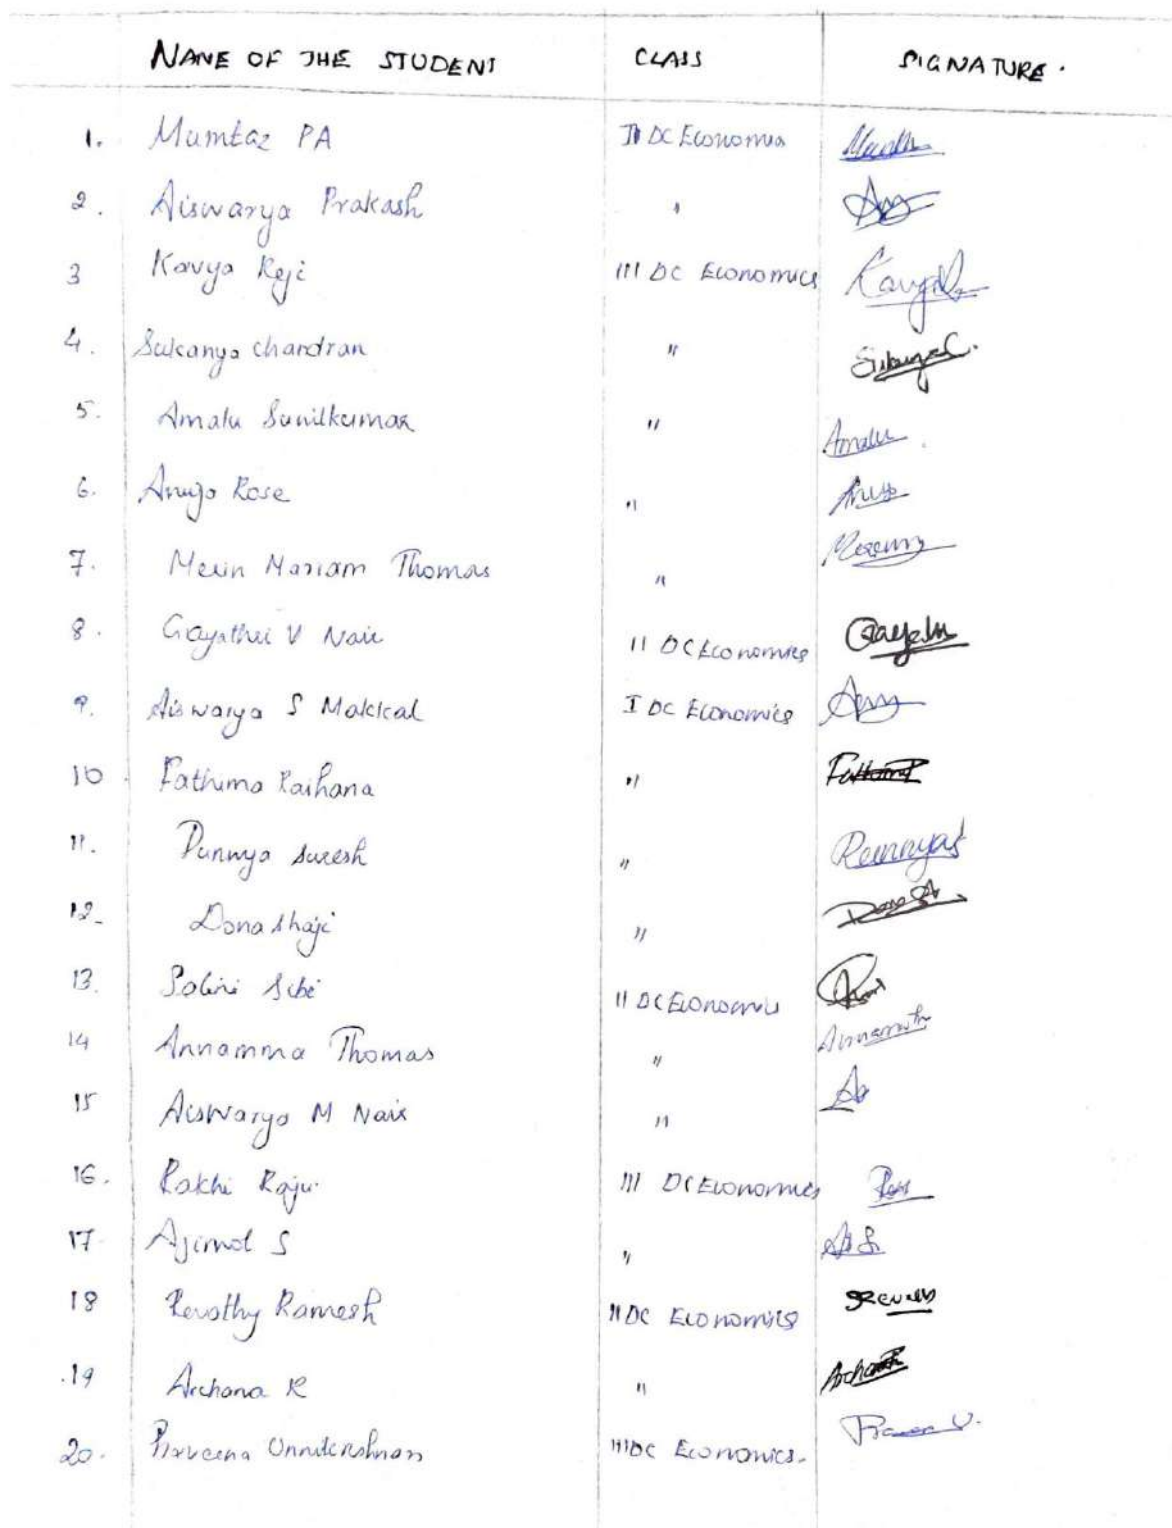 NAME OF THE STUDENT CLASS SIGNATURE.
1. Mumtaz PA II DC Economics
2. Aiswarya Prakash "
3 Kavya Reji III DC Economics Kavya
4. Sukanya Chandran " Sukanya C.
5. Amalu Sunilkumar " Amalu.
6. Anuja Rose "
7. Merin Mariam Thomas "
8. Gayathri V Nair II DC Economics
9. Aiswarya S Makkal I DC Economics
10. Fathima Raihana "
11. Punnya Suresh " Punnya S
12. Dona Shaji "
13. Sibi II DC Economics
14 Annamma Thomas "
15 Aiswarya M Nair "
16. Rakhi Raju. III DC Economics
17. Ajimol S "
18 Revathy Ramesh II DC Economics
19 Archana R "
20. Praveena Unnikrishnan III DC Economics.